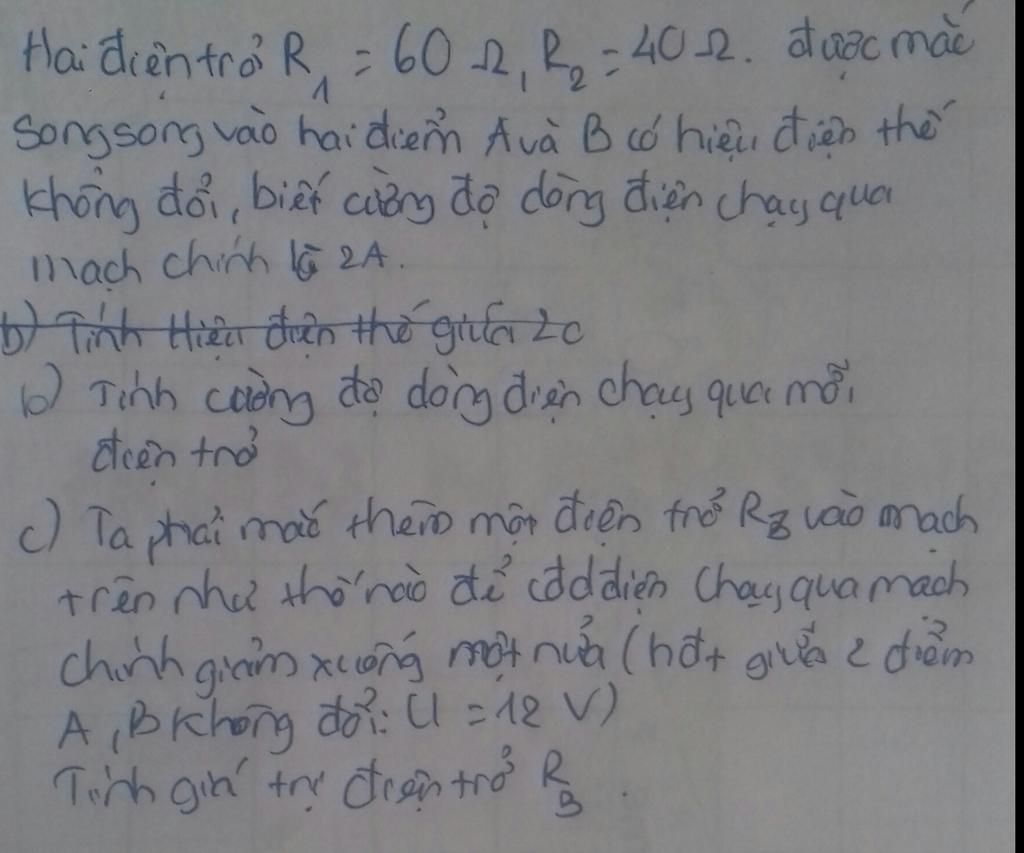 Hai điện trở R1 = 60 Ω, R2 = 40 Ω. được mắc
song song vào hai điểm A và B có hiệu điện thế
không đổi, biết cường độ dòng điện chạy qua
mạch chính là 2A.
b) Tính Hiệu điện thế giữa 2c
b) Tính cường độ dòng điện chạy qua mỗi
điện trở
c) Ta phải mắc thêm một điện trở R3 vào mạch
trên như thế nào để cđdđiện chạy qua mạch
chính giảm xuống một nửa (hđt giữa 2 điểm
A, B không đổi: U = 12 V)
Tính giá trị điện trở R3.